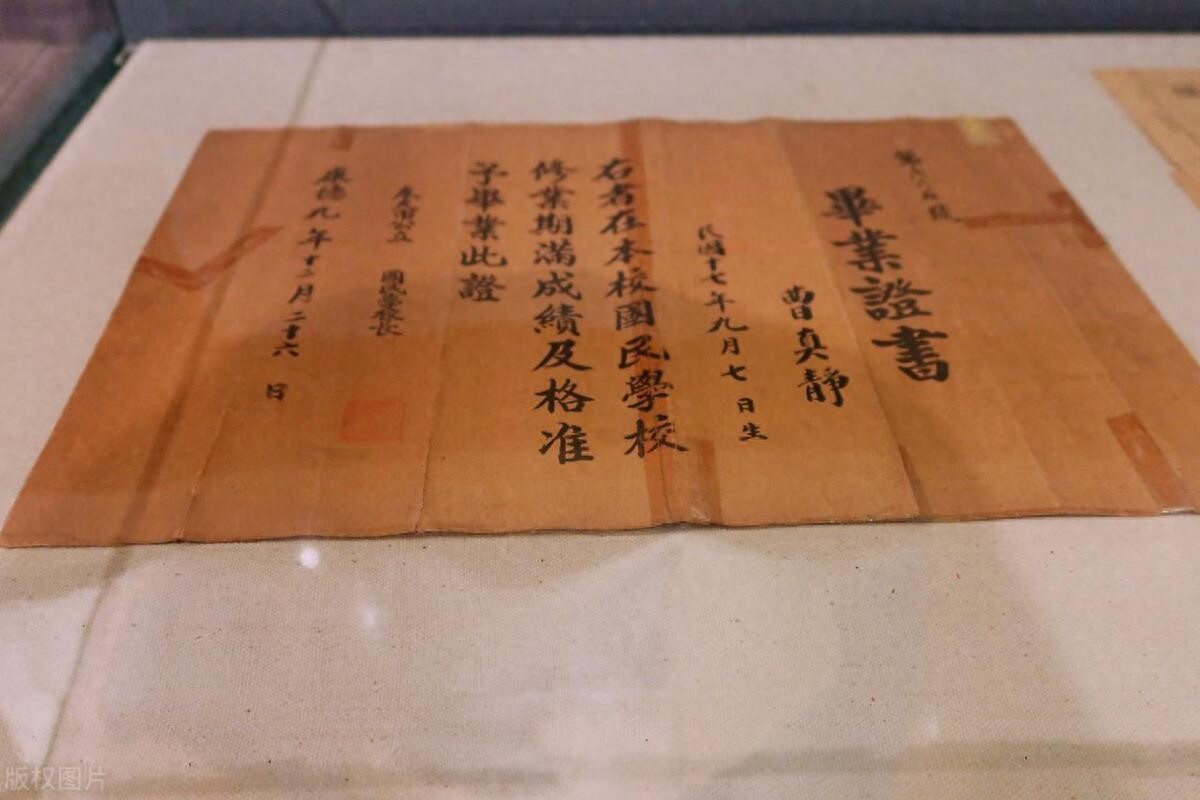 畢業證書
曹真靜
民國十七年九月七日生
右者在本校國民學校
修業期滿成績及格准
予畢業此證
國民學校長
康德九年十二月二十六日
版权图片